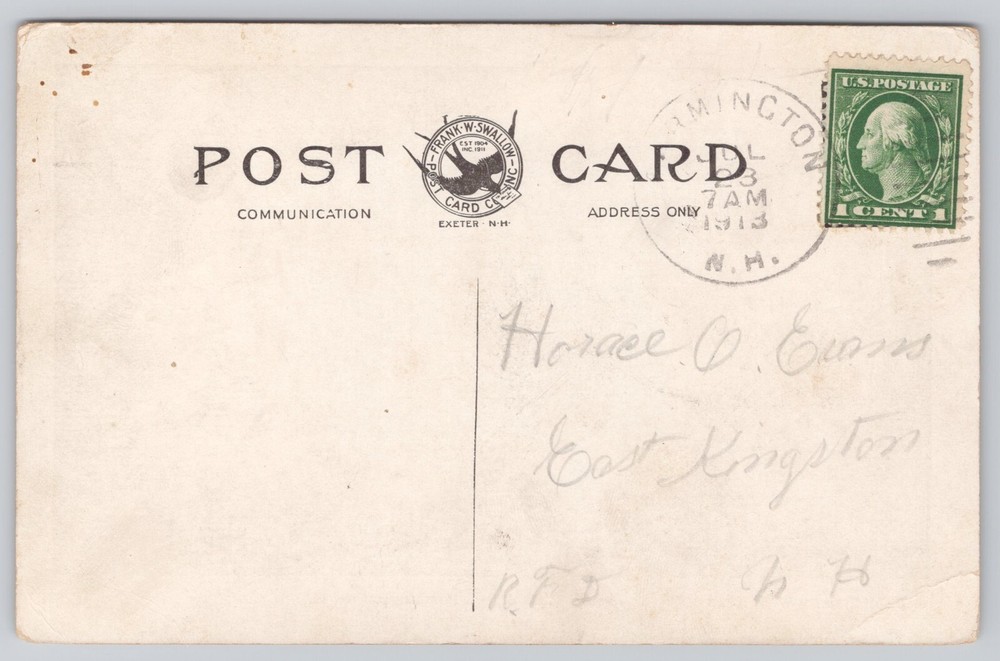 POST CARD
FRANK·W·SWALLOW
EST 1904
INC. 1911
POST CARD CO. INC
EXETER · N·H·
COMMUNICATION
ADDRESS ONLY
RMINGTON
JUL
23
7AM
1913
N.H.
U.S. POSTAGE
1 CENT 1
Horace O. Evans
East Kingston
R.F.D N H